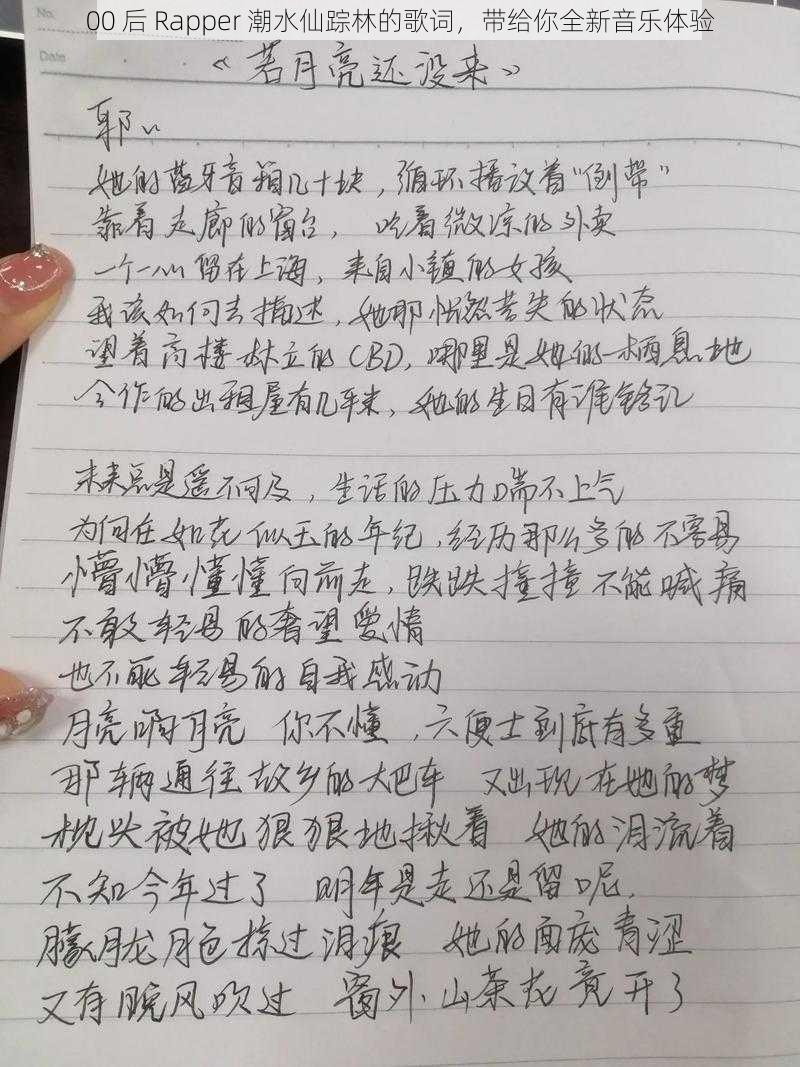 00 后 Rapper 潮水仙踪林的歌词，带给你全新音乐体验
No.
Date
《若月亮还没来》
郭..
她的蓝牙音箱几十块，循环播设着“倒带”
靠着走廊的窗台， 吃着微凉的外卖
一个人留在上海，来自小镇的女孩
我该如何去描述，她那恍然若失的状态
望着高楼林立的CBD，哪里是她的一栖息地
合作的出租屋有几年来，她的生日有谁铭记
未来总是遥不可及，生活的压力喘不上气
为何在如花似玉的年纪，经历那么多的不容易
懵懵懂懂向前走，跌跌撞撞不能喊痛
不敢轻易的奢望爱情
也不能轻易的自我感动
月亮啊月亮 你不懂，六便士到底有多重
那辆通往故乡的大巴车 又出现在她的梦
枕头被她狠狠地揪着 她的泪流着
不知今年过了 明年是走还是留呢.
朦胧月色掠过泪痕 她的面庞青涩
又有晚风吹过 窗外山茶花竟开了